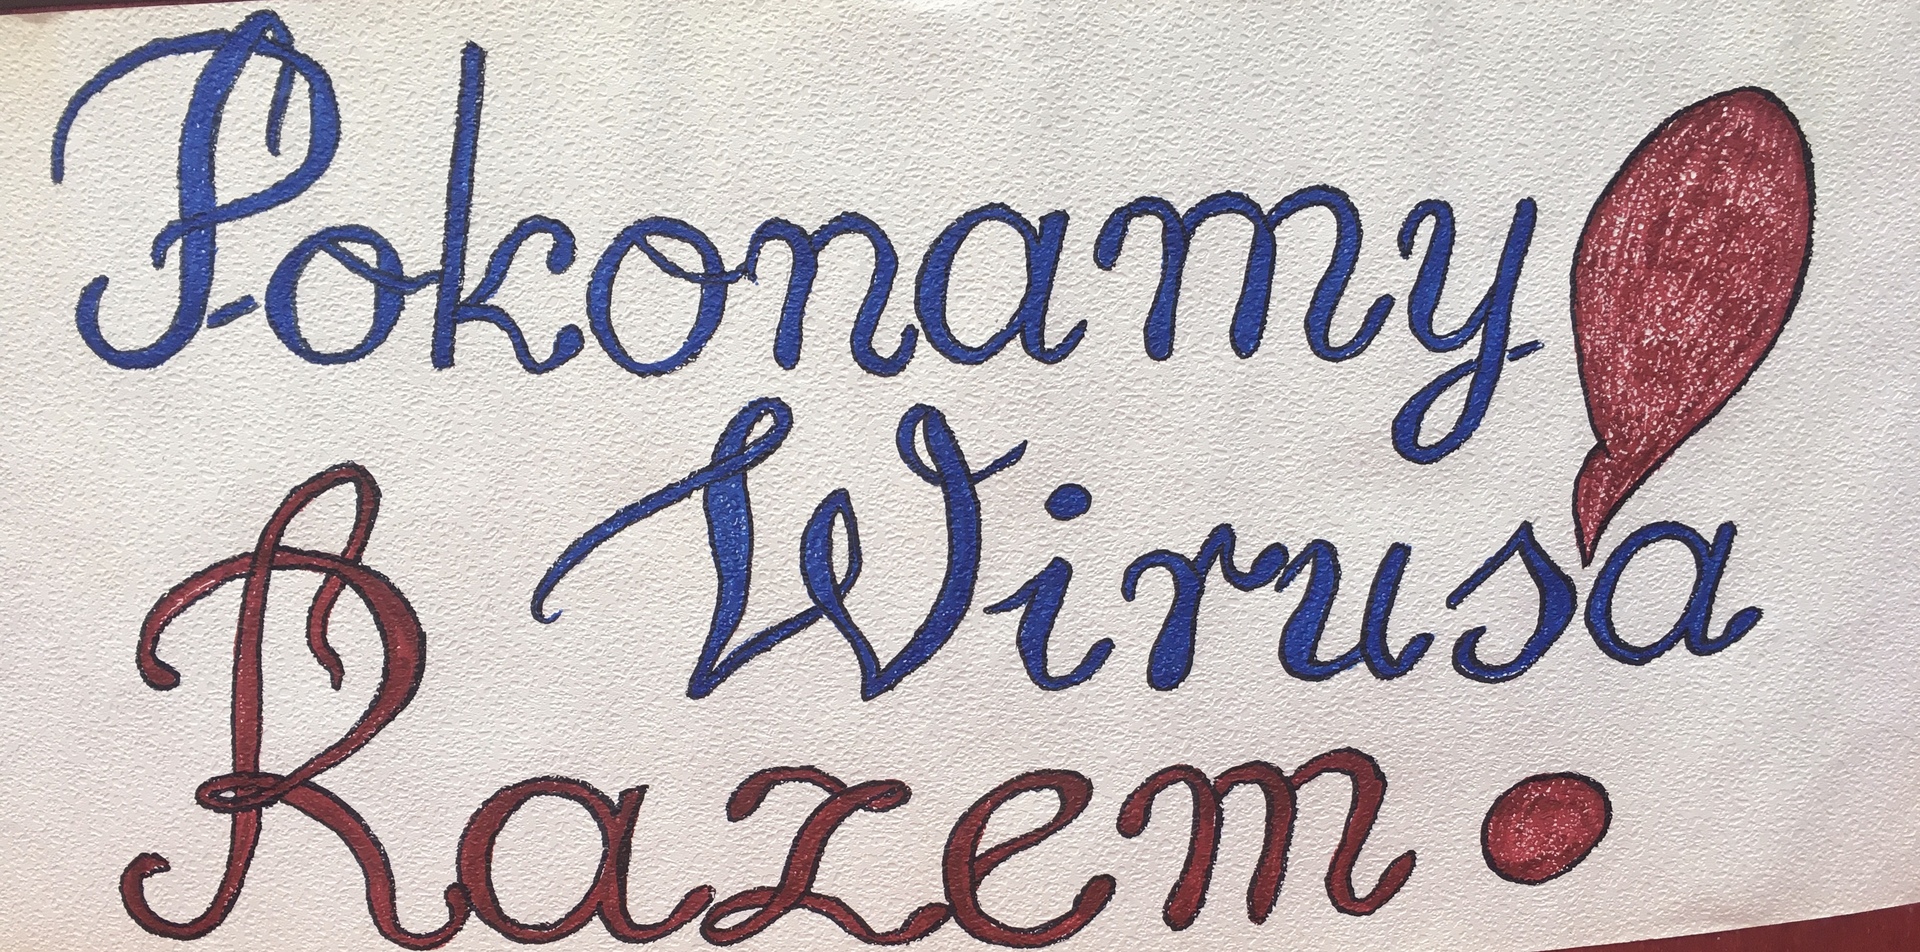 Pokonamy
Wirusa
Razem!